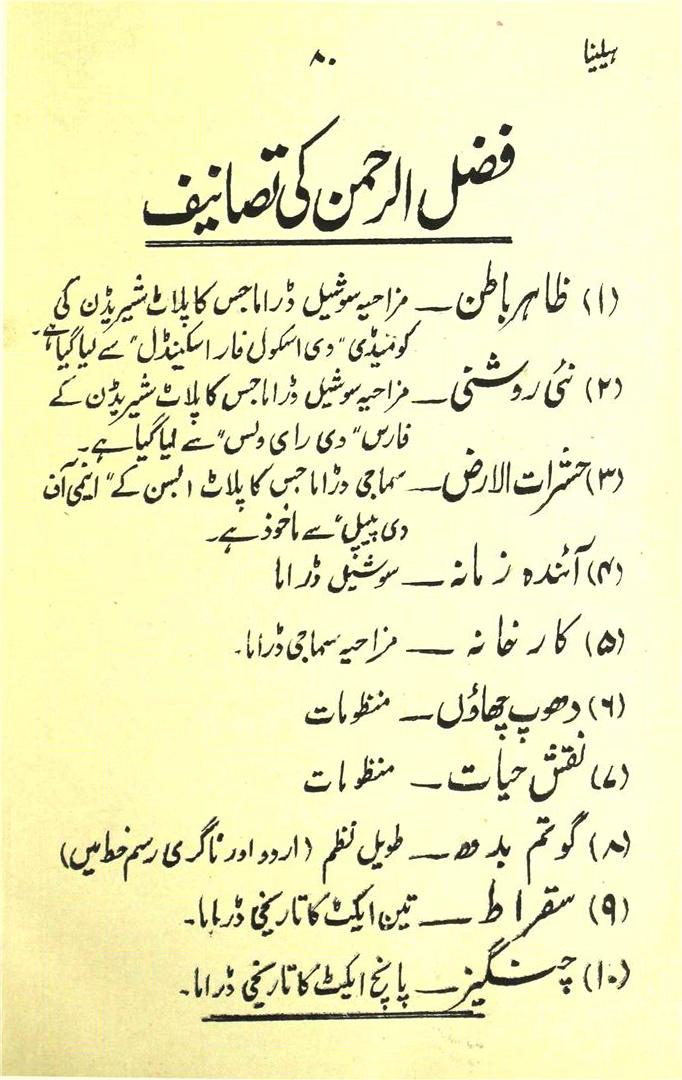 ہیلینا
۸۰
فضل الرحمن کی تصانیف
(۱) ظاہر باطن — مزاحیہ سوشیل ڈراما جس کا پلاٹ شیریڈن کی
کومیڈی "دی اسکول فار اسکینڈل" سے لیا گیا ہے۔
(۲) نئی روشنی — مزاحیہ سوشیل ڈراما جس کا پلاٹ شیریڈن کے
فارس "دی رای ولس" سے لیا گیا ہے۔
(۳) حشرات الارض — سماجی ڈراما جس کا پلاٹ ابسن کے "اینمی آف
دی پیپل" سے ماخوذ ہے۔
(۴) آئندہ زمانہ — سوشیل ڈراما
(۵) کارخانہ — مزاحیہ سماجی ڈراما۔
(۶) دھوپ چھاؤں — منظومات
(۷) نقش حیات — منظومات
(۸) گوتم بدھ — طویل نظم (اردو اور ناگری رسم خط میں)
(۹) سقراط — تین ایکٹ کا تاریخی ڈراما۔
(۱۰) چنگیز — پانچ ایکٹ کا تاریخی ڈراما۔